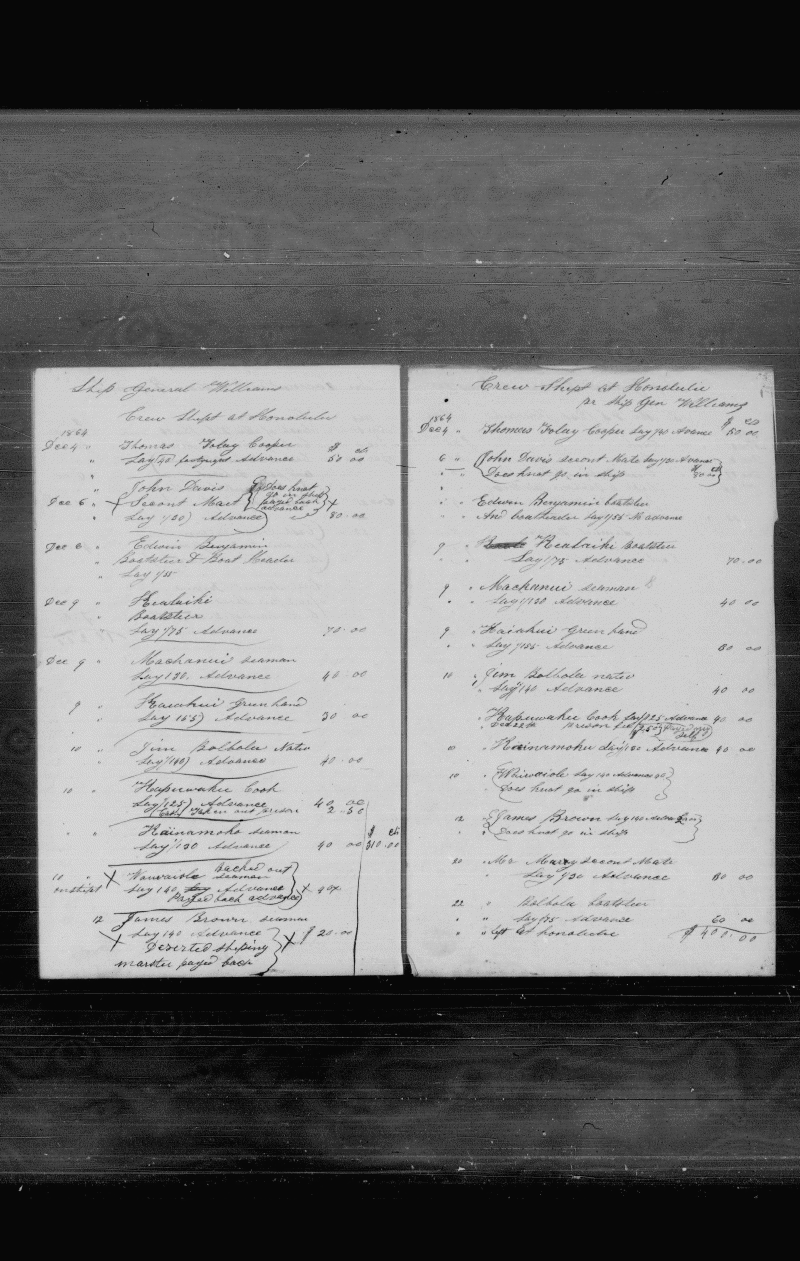 Ship General Williams
Crew Shipt at Honolulu
1864
Dec 4 " Thomas Folay Cooper $ cts
" Lay 40 Advance 50 00
" John Davis Does hnot
Dec 6 " X Secont Mact go in ship payed back advance X
" Lay 1/30) Advance 80-00
Dec 6 " Edwin Benjamin
" Boatstier & Boat Header
" Lay 1/55
Dec 9 " Kealaiki
" Boatstier
Lay 1/75 Advance 70-00
Dec 9 " Machanui seaman
Lay 120. Advance 40-00
9 " Kaiahui Greenhand
" Lay 155) Advance 30 00
10 " Jim Bolhola Nativ
" Lay 1/140) Advance 40-00
10 " Kapuwahu Cook
Lay (125) Advance 40 00
Taken out prison 2-50
" " Kainamoho seaman $ cts
Lay 1/130 Advance 40 00 310.00
10 " X backed out
seaman
Lay 140 Advance X 40X
Payed back advance
12 James Brown seaman
X Lay 140 Advance X $20-00
Deserted shiping
marster payed back
Crew Shipt at Honolulu
pr ship Gen Williams
1864 $ cts
Dec 4 " Thomas Folay Cooper Lay 1/40 Advance 50.00
6 " John Davis secont Mate Lay 1/30 Advance
" Does hnot go in ship $ 80 cts
" " Edwin Benjamin boatstier
" " And boatheader Lay 1/55 Advance
9 " Kealaiki Boatstier
" " Lay 1/75 Advance 70-00
9 " Machanui seaman
" " Lay 1/120 Advance 40 00
9 " Kaiahui Green hand
" " Lay 1/155 Advance 30 00
10 " Jim Bolhola nativ
" Lay 1/140 Advance 40 00
" Kapuwahu Cook Lay 1/125 Advance 40 00
" Dec 22th prison fee 2.50
10 " Kainamoku Lay 1/130 Advance 40 00
10 " Lay 140 Advance 40
" Does hnot go in ship
12 " James Brown Lay 140 Advance
" Does hnot go in ship
20 " Mr Murry secont Mate
" Lay 1/30 Advance 80 00
22 " Bolhola boatstier
" " Lay 1/75 Advance 60 00
" " left at honolulu $400.00